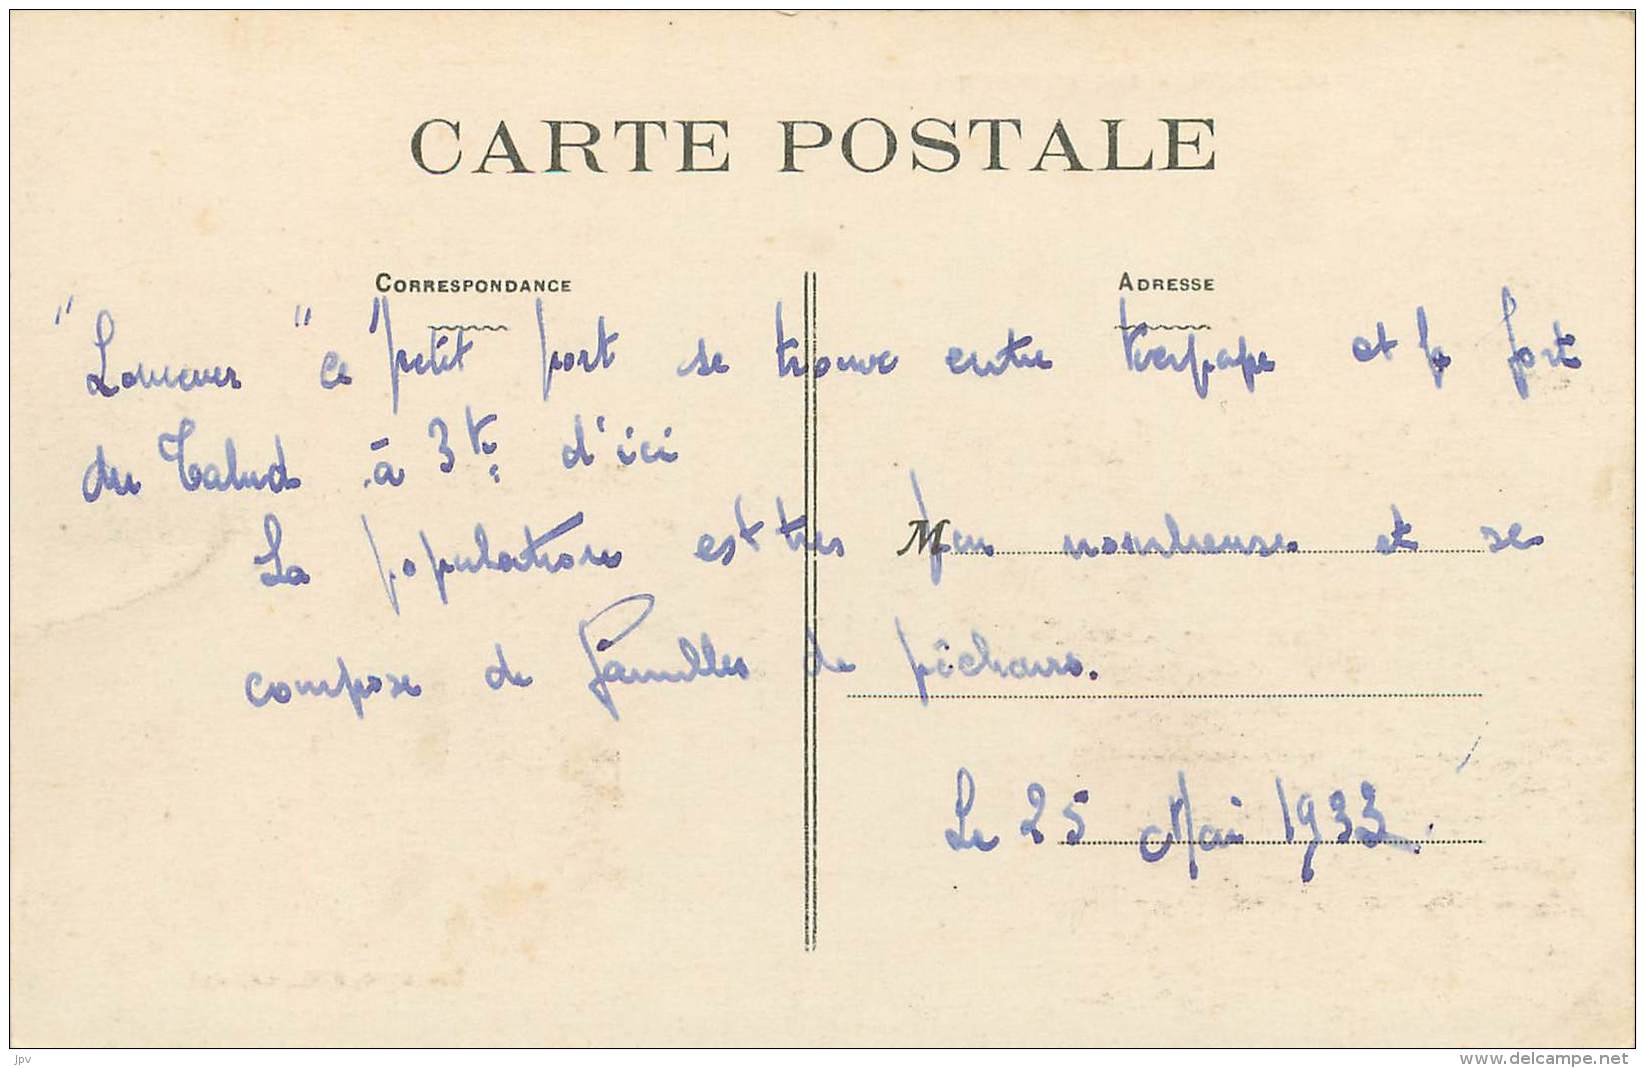 CARTE POSTALE
CORRESPONDANCE
ADRESSE
"Lomener" ce petit port se trouve entre Kerpape et le fort
du Talud à 3 k. d'ici
La population est très peu nombreuse et se
M
compose de familles de pêcheurs.
Le 25 Mai 1933.
jpv
www.delcampe.net